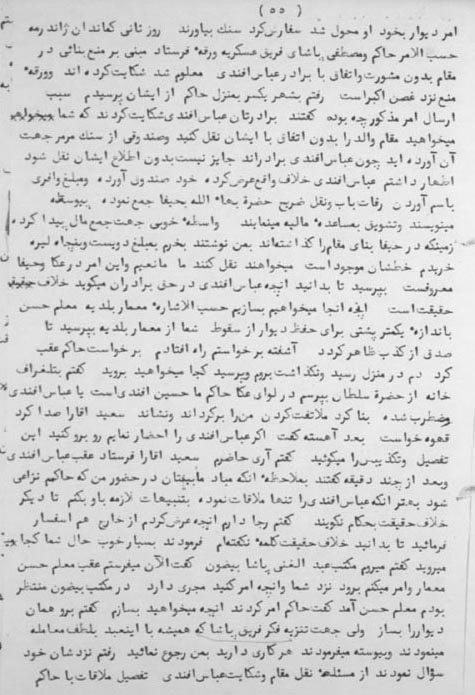 ( ٥٥ )
امر دیوار بخود او محول شد سفارش کرد سنك بیاورند روز ثانی کماندان ژاندرمه
حسب الامر حاکم ومصطفی پاشای فریق عسکریه ورقهٴ فرستاد مبنی بر منع بنائی در
مقام بدون مشورت واتفاق با برادر عباس افندی معلوم شد شکایت کرده اند وورقهٴ
منع نزد غصن اکبراست رفتم بشهر یکسر بمنزل حاکم از ایشان پرسیدم سبب
ارسال امر مذکور چه بوده گفتند برادرتان عباس افندی شکایت کردند که شما میخواهید
میخواهید مقام والد را بدون اتفاق با ایشان نقل کنید وصندوقی از سنك مرمر جهت
آن آورده اید چون عباس افندی برادراند جایز نیست بدون اطلاع ایشان نقل شود
اظهار داشتم عباس افندی خلاف واقع عرض کرده خود صندوق آورده ومبلغ وافری
باسم آوردن رفات باب ونقل ضریح حضرة بهاء الله بحیفا جمع نموده وپیوسته
مینویسند وتشویق بمساعدهٴ مالیه مینمایند واسطهٴ خوبی جهت جمع مال پیدا کرده
زمینکه در حیفا بنای مقام را گذاشته‌اند بمن نوشتند بخرم بمبلغ دویست وپنجاه لیره
خریدم خطشان موجود است میخواهند نقل کنند ما مانعیم واین امر در عکا وحیفا
معروفست بپرسید تا بدانید انچه عباس افندی در حق برادران میگوید خلاف حقیقت
حقیقت است اینجه انجا میخواهیم بسازیم حسب الاشارهٴ معمار بلدیه معلم حسن
باندازهٴ یکمتر پشتی برای حفظ دیوار از سقوط شما از معمار بلدیه بپرسید تا
صدق از کذب ظاهر گردد آشفته برخواستم راه افتادم برخواست حاکم عقب
کرد دم در منزل رسید ونگذاشت بروم وپرسید کجا میخواهید بروید گفتم بتلغراف
خانه از حضرة سلطان بپرسم در لوای عکا حاکم ما حسین افندی است یا عباس افندی
مضطرب شده بنا کرد ملاتفت کردن من را برگرداند ونشاند سعید اقارا صدا کرد
قهوه خواست بعد آهسته گفت اگر عباس افندی را احضار نمایم رو برو کنید این
تفصیل وتکذیبس را میگوئید گفتم آری حاضرم سعید اقارا فرستاد عقب عباس افندی
وبعد از چند دقیقه گفتند بملاحظهٴ انکه مباد مابینتان در حضور من که حاکم نزاعی
شود بهتر انکه عباس افندی را تنها ملاقات نموده بتنبیهات لازمه باو بکنم تا دیگر
خلاف حقیقت بحکام نگویند گفتم رجا دارم انچه عرض کردم از خارج هم اسفسار
فرمائید تا بدانید خلاف حقیقت کلمهٴ نگفته‌ام فرمودند بسیار خوب حال شما کجا
میروید گفتم میروم مکتب عبد الغنی پاشا بیضون گفت الآن میفرستم عقب معلم حسن
معمار وامر میکنم برود نزد شما وانچه امر کنید مجری دارد در مکتب بیضون منتظر
بودم معلم حسن آمد گفت حاکم امر کردند انچه میخواهید بسازم گفتم برو همان
دیوار را بساز ولی جهت تنزیه فکر فریق پاشا که همیشه با اینعبد بلطف معامله
مینمودند وپیوسته میفرمودند هر کاری دارید بمن رجوع نمائید رفتم نزدشان خود
سؤال نمودند از مسئلهٴ نقل مقام وشکایت عباس افندی تفصیل ملاقات با حاکم